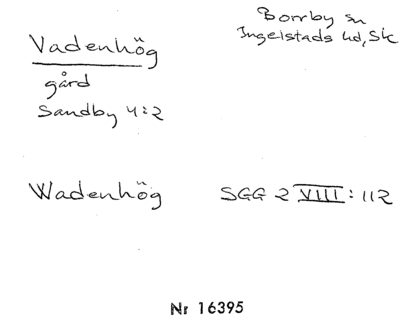 Vadenhög
Borrby sn
Ingelstads hd, Sk
gård
Sandby 4:2
Wadenhög SGG 2 VIII: 112
Nr 16395